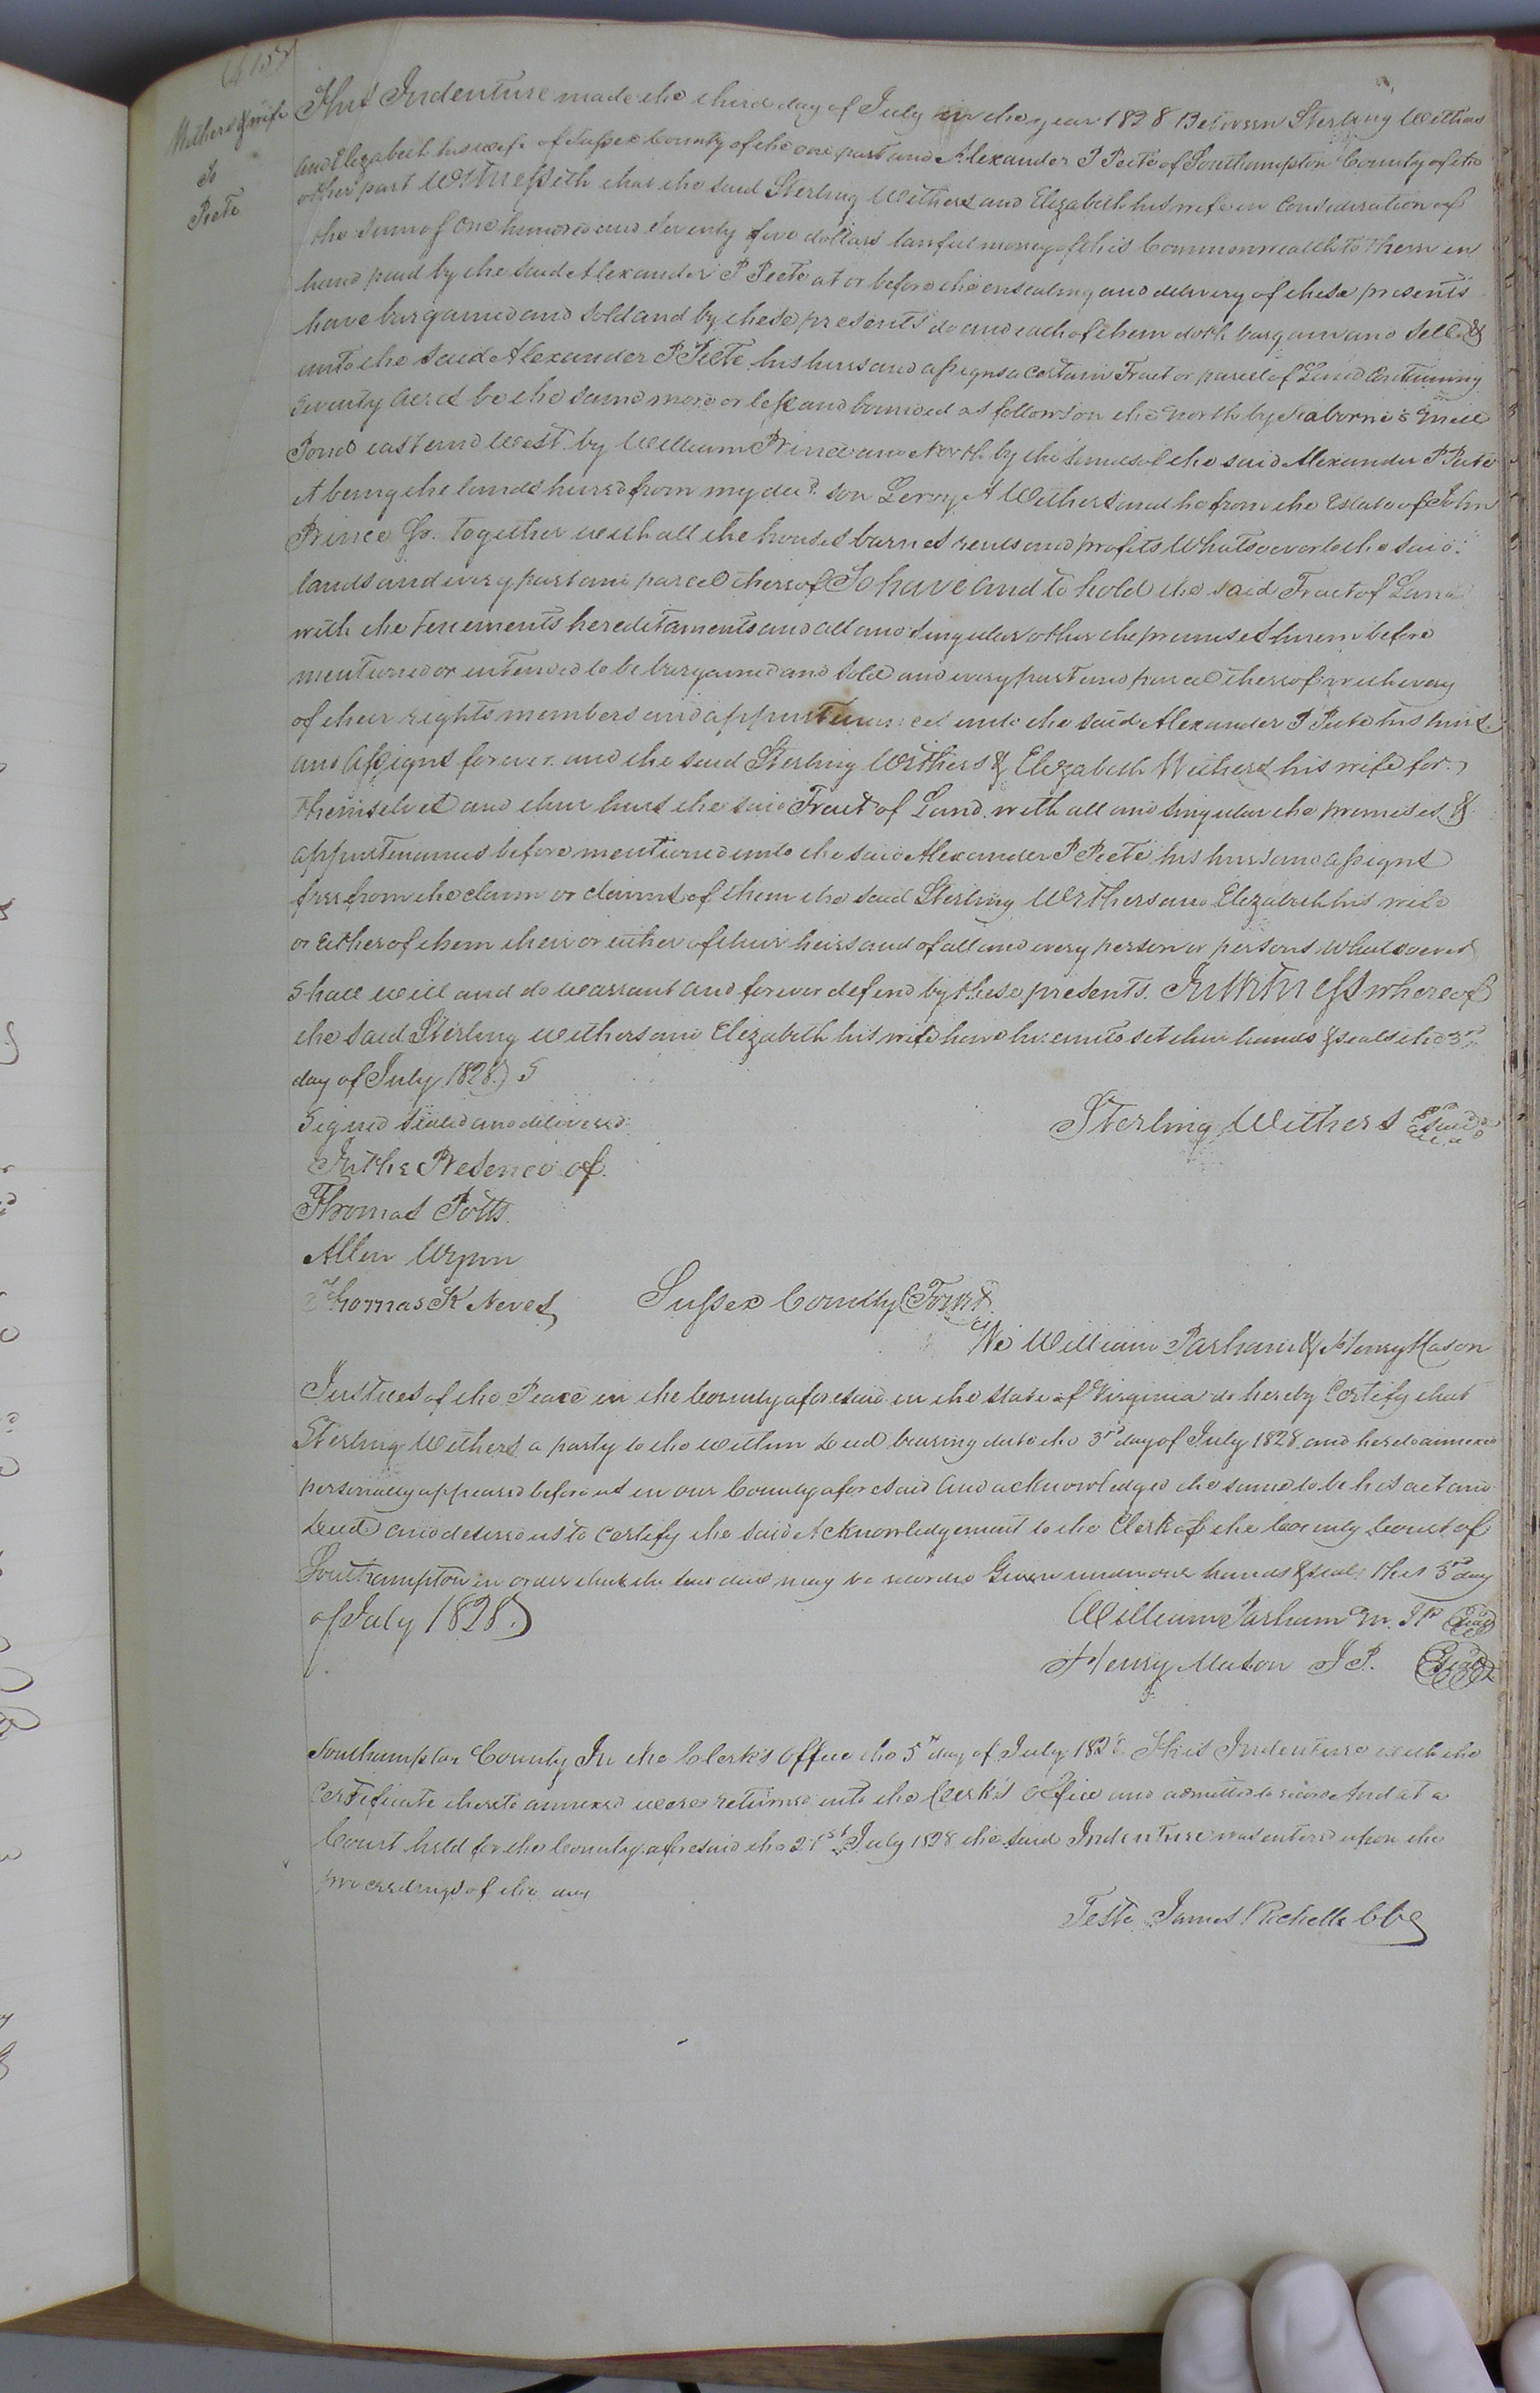 Withers & wife
To
Peete
This Indenture made the third day of July in the year 1828 Between Sterling Withers
and Elizabeth his wife of Sussex County of the one part and Alexander P Peete of Southampton County of the
other part Witnesseth that the said Sterling Withers and Elizabeth his wife in Consideration of
the Sum of One hundred and Seventy five dollars lawful money of this Commonwealth to them in
hand paid by the said Alexander P Peete at or before the ensealing and delivery of these presents
have bargained and sold and by these presents do and each of them doth bargain and Sell
unto the said Alexander P Peete his heirs and assigns a certain Tract or parcel of Land Containing
Seventy Acres be the same more or less and bounded as follows on the North by Seaborne's Mill
Pond east and West by William Prince and North by the lands of the said Alexander P Peete
it being the lands heired from my decd. son Leroy A Withers and he from the Estate of John
Prince Jr. together with all the houses barnes rents and profits Whatsoever to the said
lands and every part and parcel thereof To have and to hold the said Tract of Land
with the tenements hereditaments and all and singular other the premises herein before
mentioned or intended to be bargained and sold and every part and parcel thereof with every
of their rights members and appurtenances unto the said Alexander P Peete his heirs
and Assigns forever. and the said Sterling Withers & Elizabeth Withers his wife for
themselves and their heirs the said Tract of Land with all and singular the premises &
appurtenances before mentioned unto the said Alexander P Peete his heirs and assigns
free from the claim or claims of them the said Sterling Withers and Elizabeth his wife
or Either of them their or either of their heirs and of all and every person or persons Whatsoever
Shall will and do warrant and forever defend by these presents. In Witness whereof
the said Sterling Withers and Elizabeth his wife have hereunto set their hands & seals the 3rd
day of July 1828.
Signed Sealed and delivered
In the Presence of
Sterling Withers Seal
Thomas Potts.
Allen Wynn
Thomas K Neves
Sussex County Towit.
We William Parham & Henry Mason
Justices of the Peace in the County aforesaid in the State of Virginia do hereby Certify that
Sterling Withers a party to the within Deed bearing date the 3rd day of July 1828 and hereto annexed
personally appeared before us in our County aforesaid and acknowledged the same to be his act and
Deed and desired us to Certify the said Acknowledgement to the Clerk of the County Court of
Southampton in order that the said deed may be recorded Given under our hands & seals this 3rd day
of July 1828.
William Parham JP Seal
Henry Mason J P. Seal
Southampton County In the Clerk's Office the 5th day of July 1828. This Indenture with the
Certificate thereto annexed were returned into the Clerk's Office and admitted to record And at a
Court held for the County aforesaid the 21st July 1828 the said Indenture was entered upon the
proceedings of the day
Teste James Rochelle CC